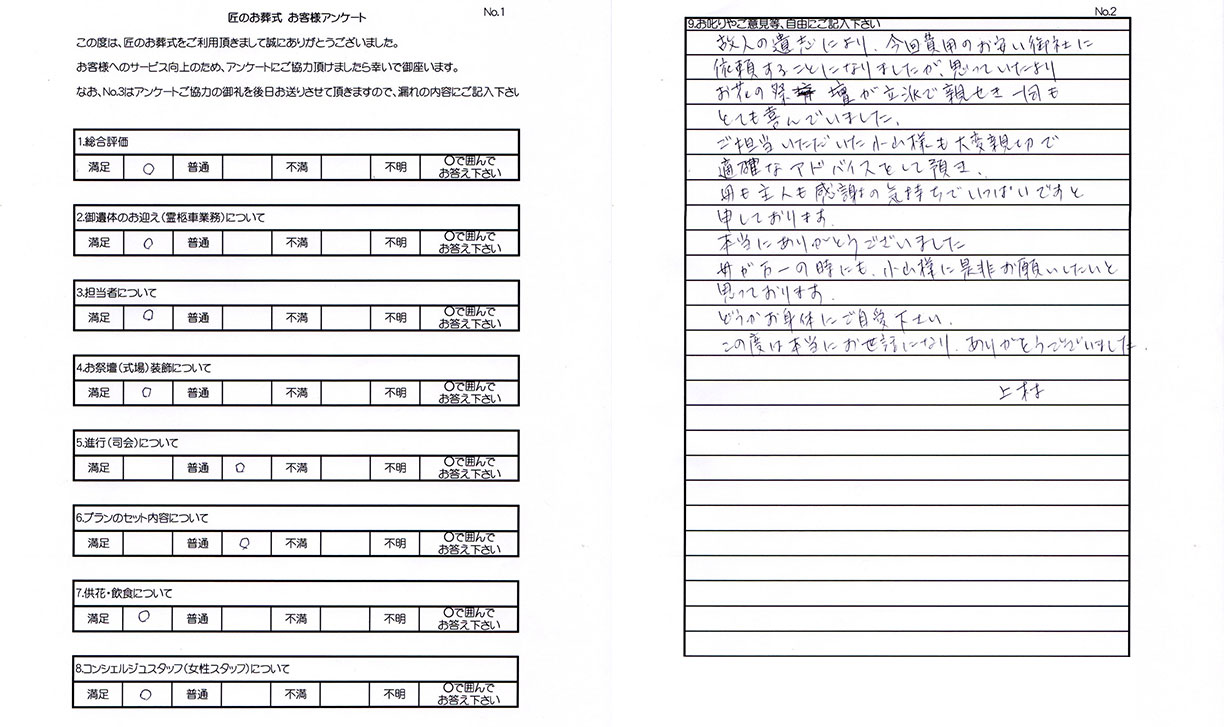 匠のお葬式 お客様アンケート
No.1
この度は、匠のお葬式をご利用頂きまして誠にありがとうございました。
お客様へのサービス向上のため、アンケートにご協力頂けましたら幸いで御座います。
なお、No.3はアンケートご協力の御礼を後日お送りさせて頂きますので、漏れの内容にご記入下さい
1.総合評価
満足 ○ 普通 不満 不明 ○で囲んで
お答え下さい
2.御遺体のお迎え(霊柩車業務)について
満足 ○ 普通 不満 不明 ○で囲んで
お答え下さい
3.担当者について
満足 ○ 普通 不満 不明 ○で囲んで
お答え下さい
4.お祭壇(式場)装飾について
満足 ○ 普通 不満 不明 ○で囲んで
お答え下さい
5.進行(司会)について
満足 普通 ○ 不満 不明 ○で囲んで
お答え下さい
6.プランのセット内容について
満足 普通 ○ 不満 不明 ○で囲んで
お答え下さい
7.供花・飲食について
満足 ○ 普通 不満 不明 ○で囲んで
お答え下さい
8.コンシェルジュスタッフ(女性スタッフ)について
満足 ○ 普通 不満 不明 ○で囲んで
お答え下さい
No.2
9.お叱りやご意見等、自由にご記入下さい
故人の遺志により、今回費用のお安い御社に
依頼することになりましたが、思っていたより
お花の祭壇が立派で親せき一同も
とても喜んでいました。
ご担当いただいた小山様も大変親切で
適確なアドバイスをして頂き、
母も主人も感謝の気持ちでいっぱいですと
申しております。
本当にありがとうございました
母が万一の時にも、小山様に是非お願いしたいと
思っております。
どうかお身体にご自愛下さい。
この度は本当にお世話になり、ありがとうございました。
上村